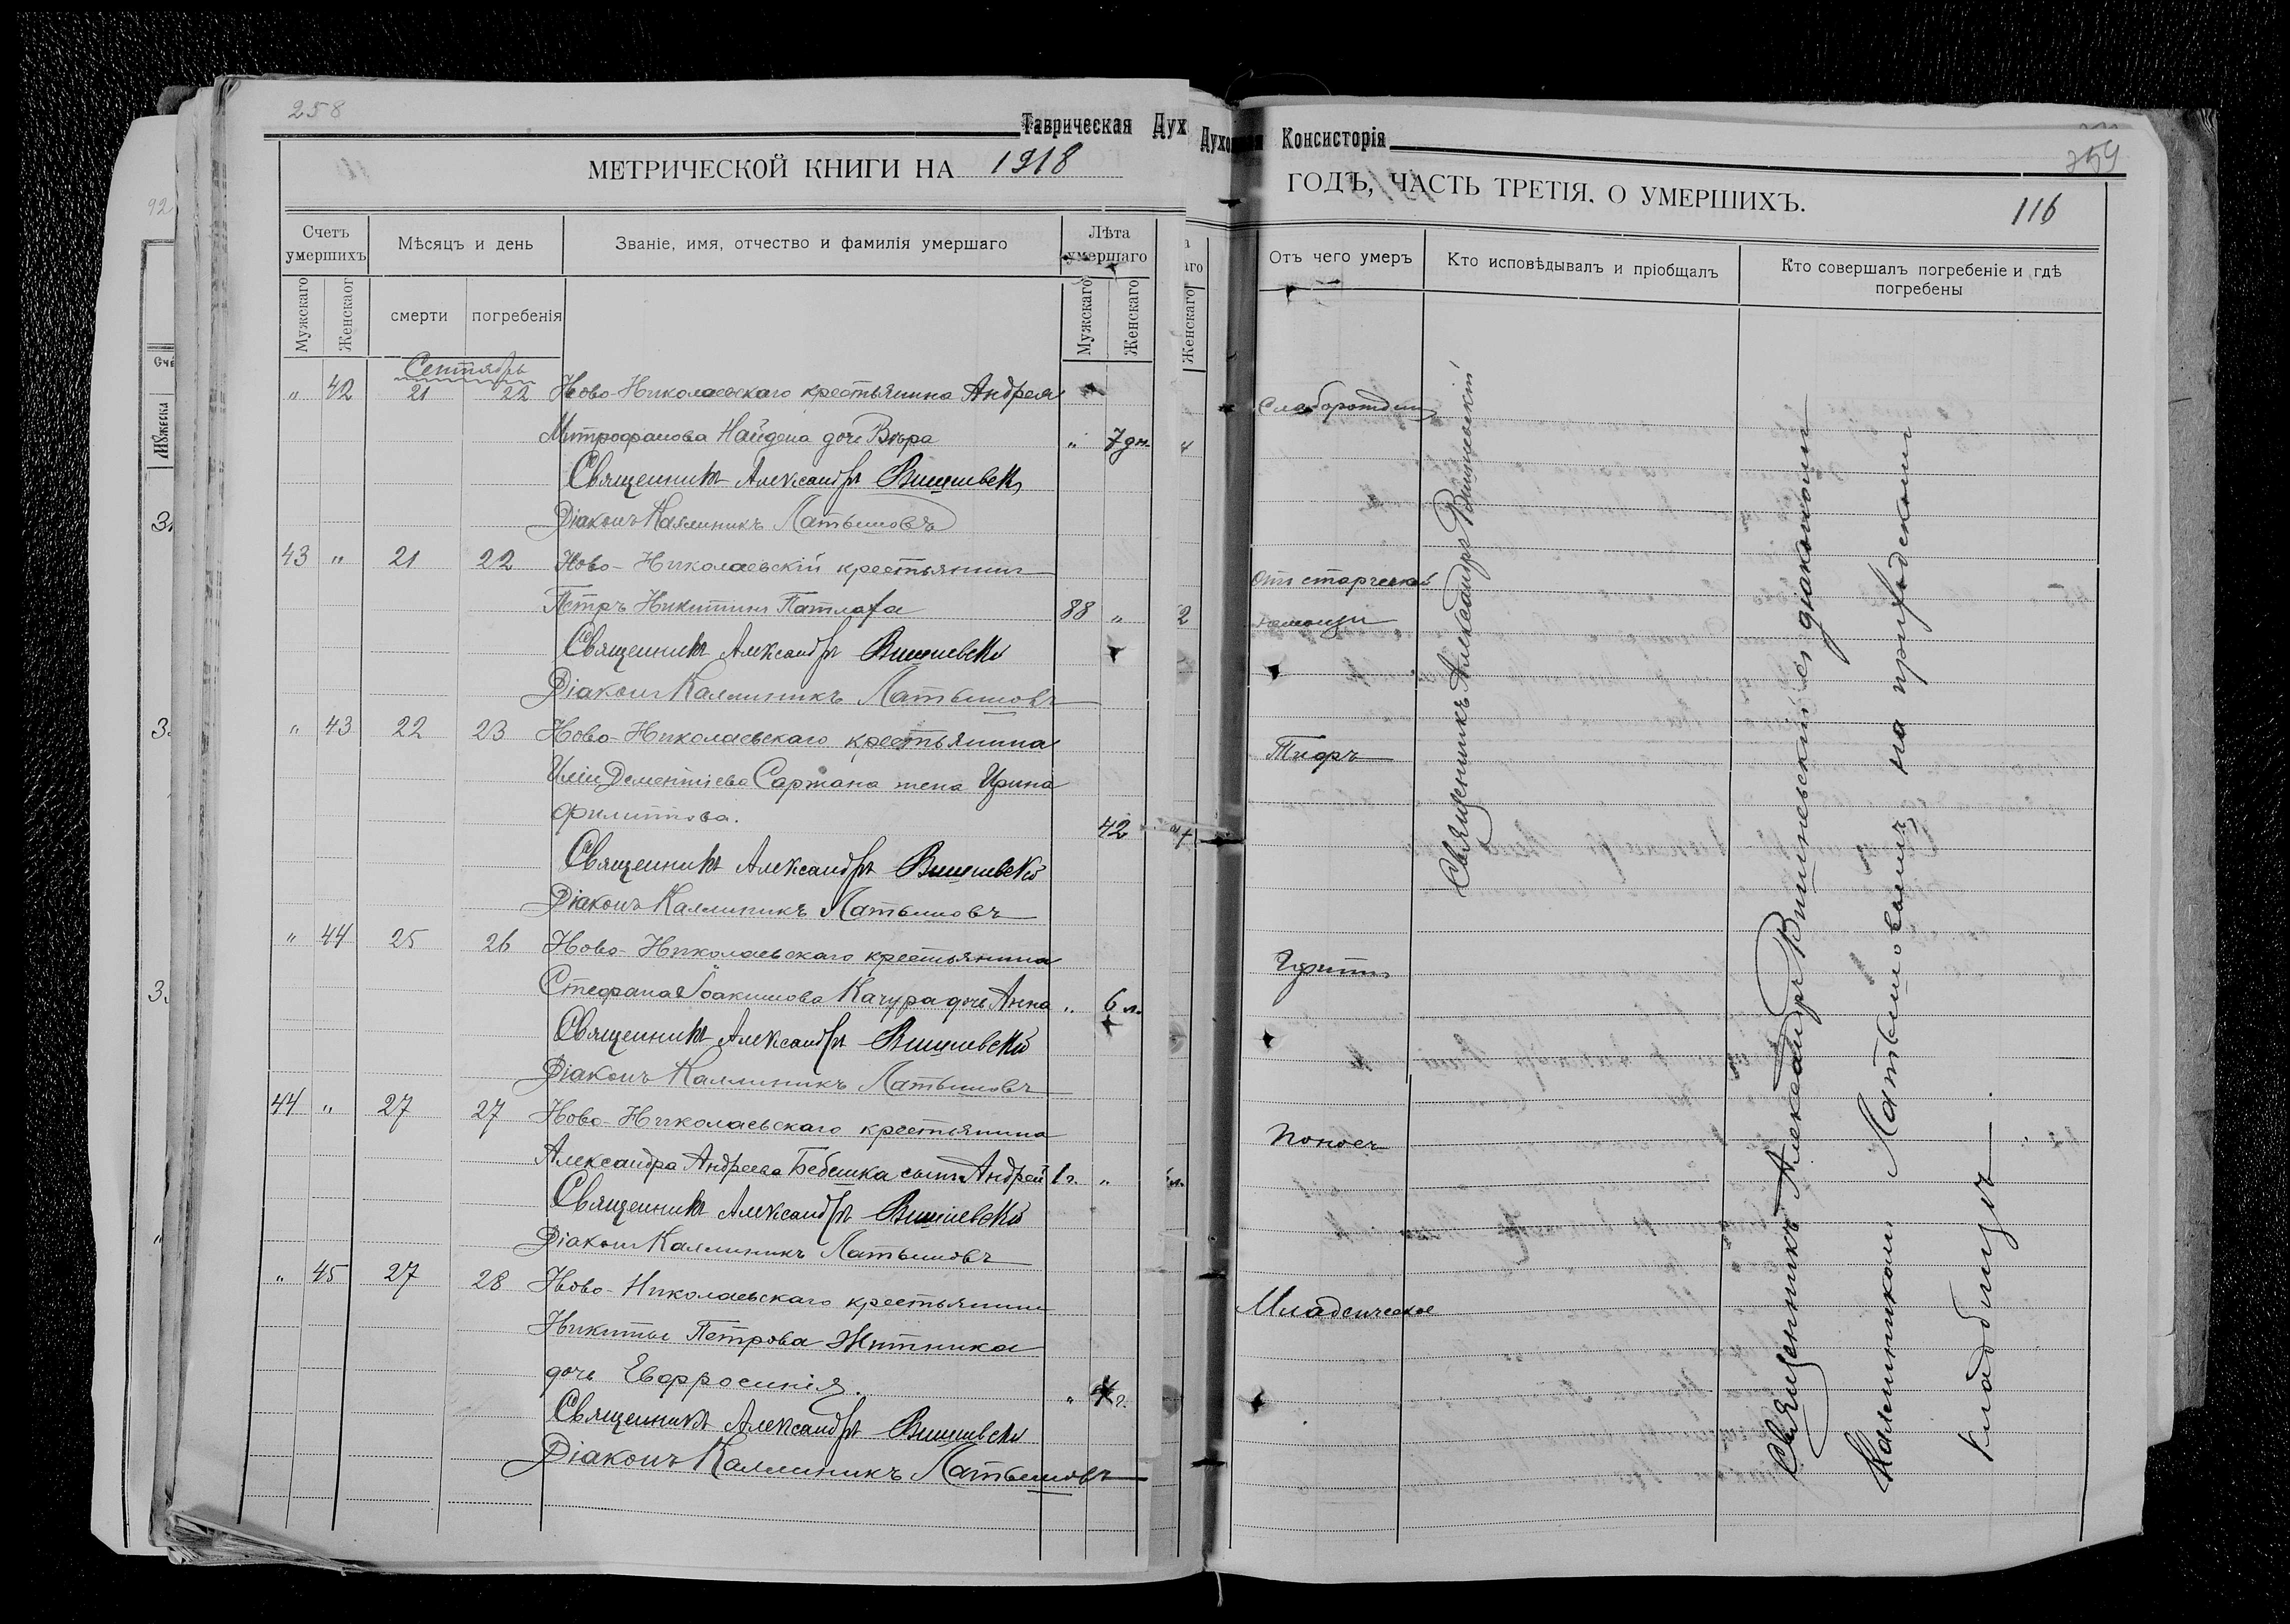 258
Таврическая Дух
МЕТРИЧЕСКОЙ КНИГИ НА 1918
Счетъ умершихъ
Мѣсяцъ и день
Званіе, имя, отчество и фамилія умершаго
Лѣта умершаго
Мужскаго
Женскаог
смерти
погребенія
Мужскаго
Женскаго
Сентябрь
" 42 21 22 Ново-Николаевскаго крестьянина Андрея
Митрофанова Найдена дочь Вѣра " 7 дн.
Священникъ Александръ Вишневскі
Діаконъ Каллиникъ Латышовъ
43 " 21 22 Ново-Николаевскій крестьянинъ
Петръ Никитинъ Патлаха 88 "
Священникъ Александръ Вишневскій
Діаконъ Каллиникъ Латышовъ
" 43 22 23 Ново-Николаевскаго крестьянина
Иліи Дементіева Саржана жена Ирина
Филиппова. 42
Священникъ Александръ Вишневскій
Діаконъ Каллиникъ Латышовъ
" 44 25 26 Ново-Николаевскаго крестьянина
Стефана Іоакимова Качура дочь Анна " 6 л.
Священникъ Александръ Вишневскій
Діаконъ Каллиникъ Латышовъ
44 " 27 27 Ново-Николаевскаго крестьянина
Александра Андреева Бебешка сынъ Андрей 1 г. "
Священникъ Александръ Вишневскій
Діаконъ Каллиникъ Латышовъ
" 45 27 28 Ново-Николаевскаго крестьянина
Никиты Петрова Житника
дочь Евфросинія. " г.
Священникъ Александръ Вишневскій
Діаконъ Каллиникъ Латышовъ
Духовная Консисторія
259
ГОДЪ, ЧАСТЬ ТРЕТІЯ, О УМЕРШИХЪ.
116
Отъ чего умеръ
Кто исповѣдывалъ и пріобщалъ
Кто совершалъ погребеніе и гдѣ погребены
Женскаго
Слаборожден
Отъ старческой
немощи
Тифъ
Понос
Младенческое
Священникъ Александръ Вишневскій
Священникъ Александръ Вишневскій съ діакономъ
Каллиникомъ Латышовымъ на приходскомъ
кладбищѣ.